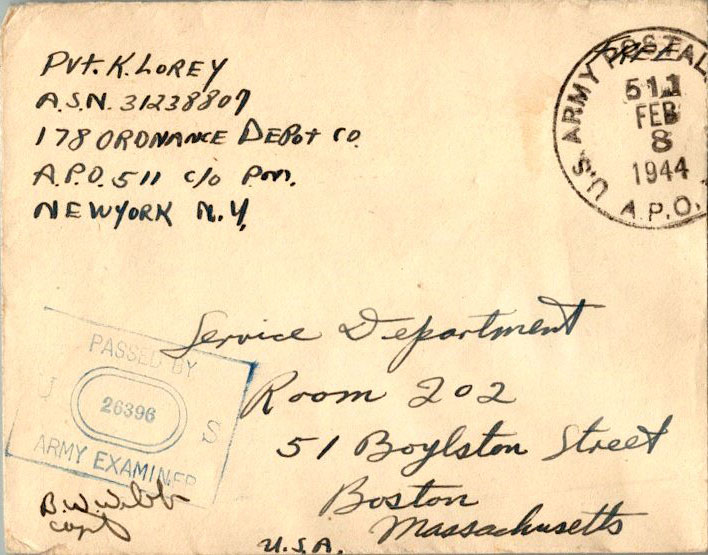 Pvt. K. LOREY
A.S.N. 31238807
178 ORDNANCE DEPOT CO.
A.P.O. 511 c/o P.M.
NEW YORK N.Y.
Free
U.S. ARMY POSTAL
511
FEB
8
1944
A.P.O.
Service Department
Room 202
51 Boylston Street
Boston
Massachusetts
U.S.A.
PASSED BY
U 26396 S
ARMY EXAMINER
B.W. Webb
Capt